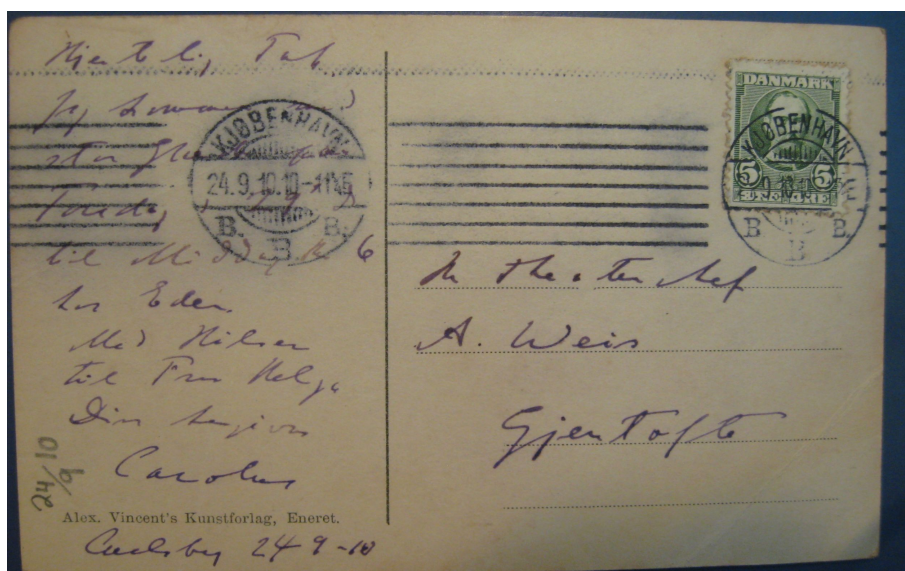 Hjertelig Tak
Jeg kommer med
stor Glæde
Fredag
til Middag Kl. 6
hos Eder
Med Hilsen
til Fru Helga
Din hengivne
Carolus
24/9 10
Alex. Vincent's Kunstforlag, Eneret.
Carlsberg 24 9-10
KJØBENHAVN
24.9.10.10-11
B. B B.
DANMARK
5 5
KJØBENHAVN
B B B.
Hr Theaterchef
A. Weis
Gjentofte